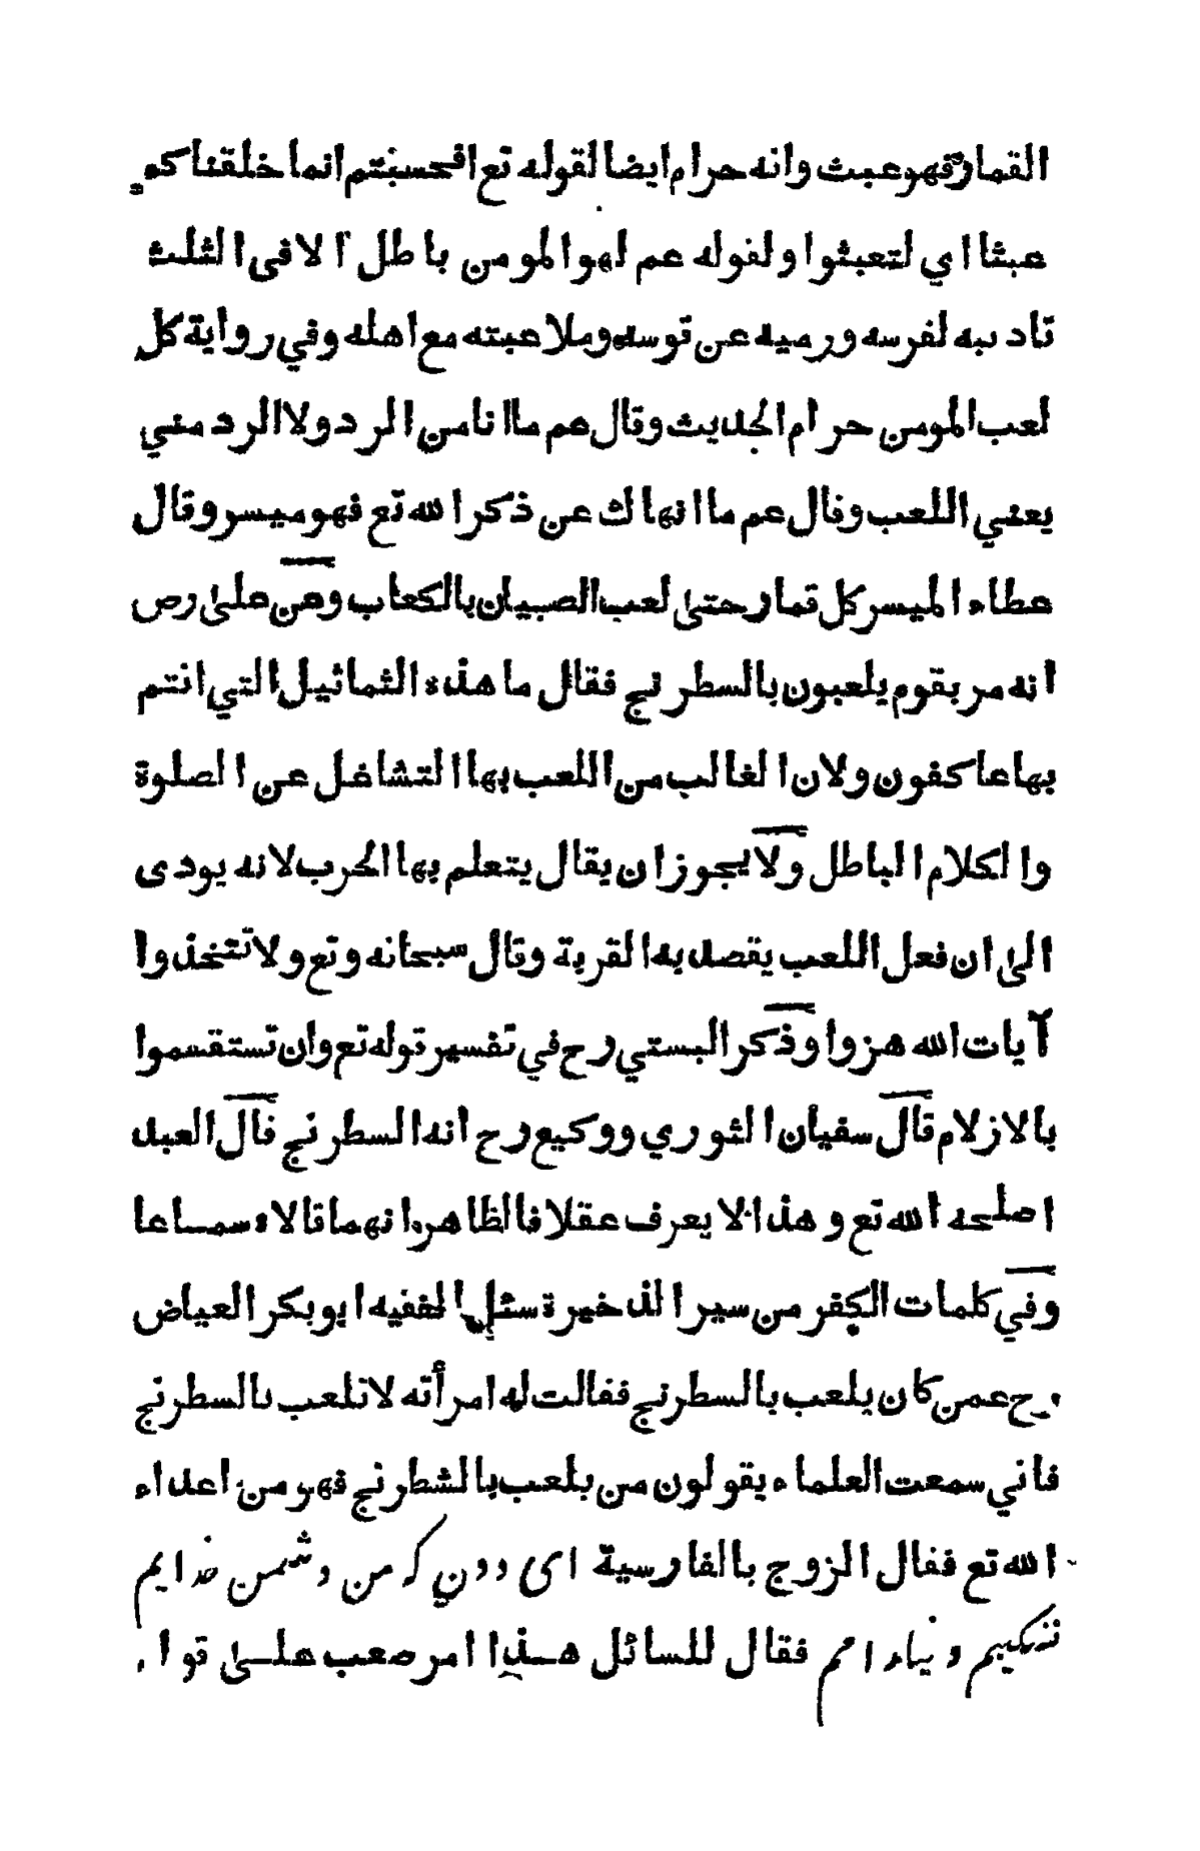 القمار فهو عبث وانه حرام ايضا لقوله تع افحسبتم انما خلقناكم
عبثا اي لتعبثوا ولقوله عم لهو المومن باطل الا في الثلث
تاديبه لفرسه ورميه عن قوسه وملاعبته مع اهله وفي رواية كل
لعب المومن حرام الحديث وقال عم ما انا من الرد ولا الرد مني
يعني اللعب وقال عم ما انهاك عن ذكر الله تع فهو ميسر وقال
عطاء الميسر كل قمار حتى لعب الصبيان بالكعاب وعن على رص
انه مر بقوم يلعبون بالسطرنج فقال ما هذه التماثيل التي انتم
بها عاكفون ولان الغالب من اللعب بها التشاغل عن الصلوة
والكلام الباطل ولا يجوز ان يقال يتعلم بها الحرب لانه يودى
الى ان فعل اللعب يقصد به القربة وقال سبحانه وتع ولا تتخذوا
آيات الله هزوا وذكر البستي رح في تفسير قوله تع وان تستقسموا
بالازلام قال سفيان الثوري ووكيع رح انه السطرنج قال العبد
اصلحه الله تع وهذا لا يعرف عقلا فالظاهر انهما قالاه سماعا
وفي كلمات الكفر من سير الذخيرة سئل الفقيه ابو بكر العياض
رح عمن كان يلعب بالسطرنج فقالت له امرأته لا تلعب بالسطرنج
فاني سمعت العلماء يقولون من يلعب بالشطرنج فهو من اعداء
الله تع فقال الزوج بالفارسية اى دون كه من دشمن خدايم
نشكيبم و نيارامم فقال للسائل هذا امر صعب على قوا